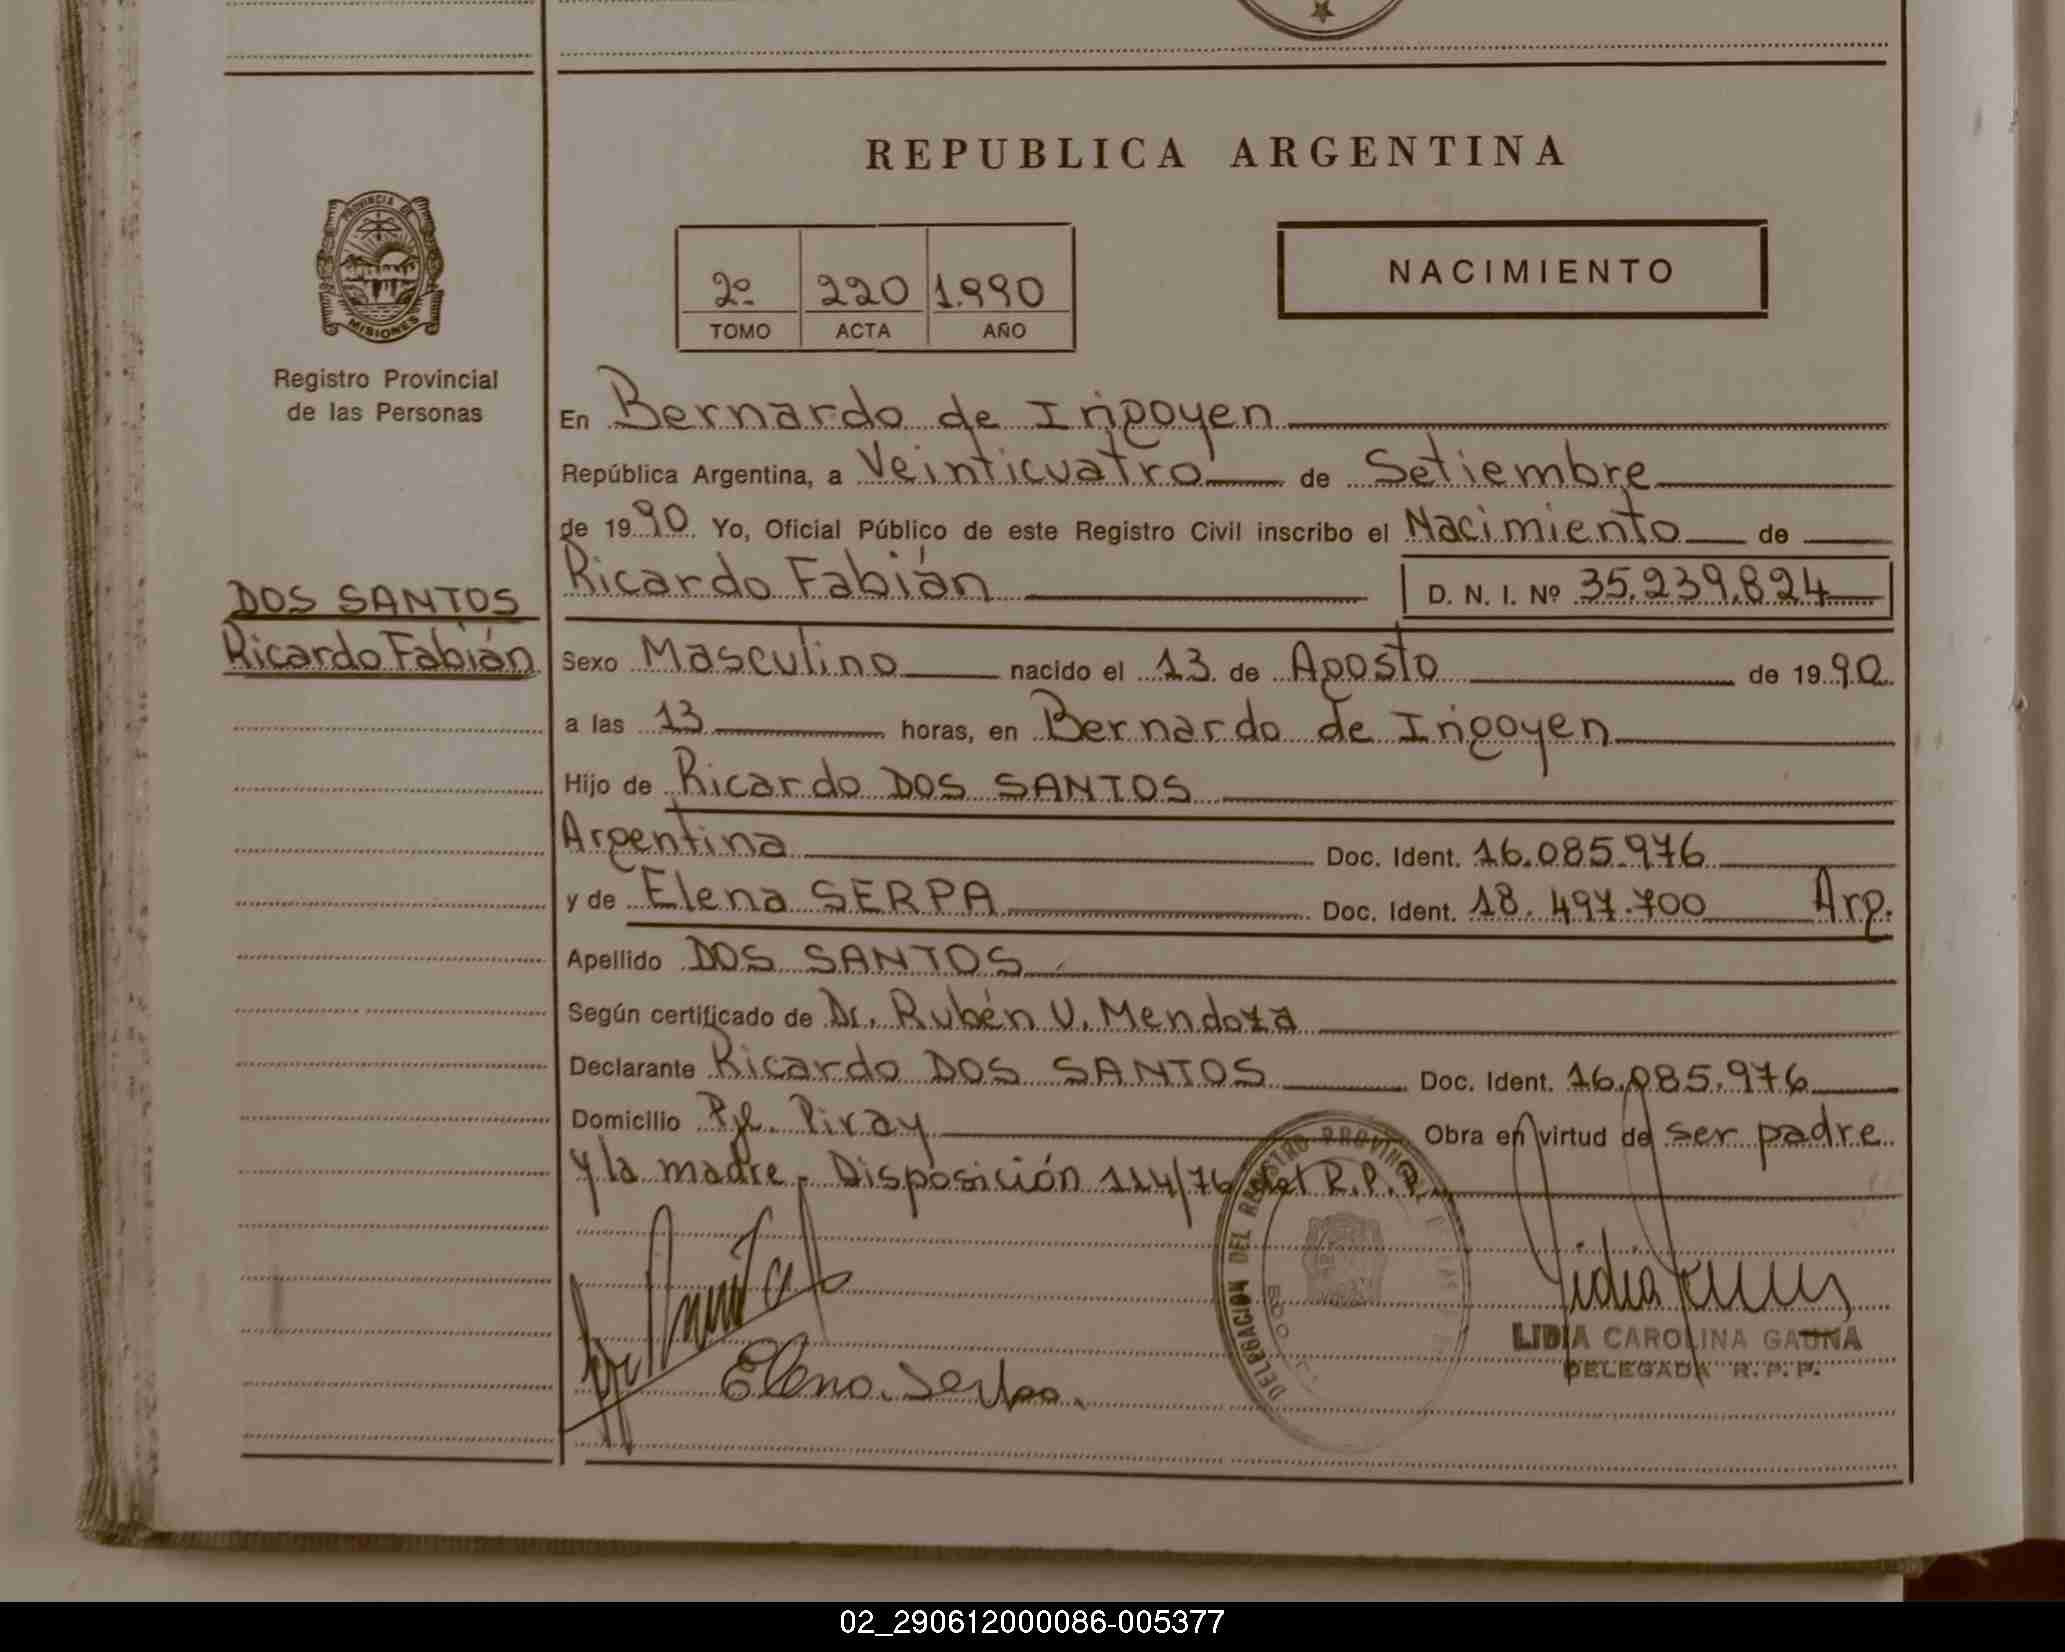 REPUBLICA ARGENTINA
PROVINCIA DE
MISIONES
Registro Provincial
de las Personas
2º 220 1.990
TOMO ACTA AÑO
NACIMIENTO
En Bernardo de Irigoyen
República Argentina, a Veinticuatro de Setiembre
de 1990 Yo, Oficial Público de este Registro Civil inscribo el Nacimiento de
Ricardo Fabián D. N. I. Nº 35.239.824
DOS SANTOS
Ricardo Fabián
Sexo Masculino nacido el 13 de Agosto de 1990
a las 13 horas, en Bernardo de Irigoyen
Hijo de Ricardo DOS SANTOS
Argentina Doc. Ident. 16.085.976
y de Elena SERPA Doc. Ident. 18.497.700 Arg.
Apellido DOS SANTOS
Según certificado de Dr. Rubén V. Mendoza
Declarante Ricardo DOS SANTOS Doc. Ident. 16.085.976
Domicilio Pje. Piray Obra en virtud de ser padre
y la madre. Disposición 114/76 del R.P.P.
DELEGACION DEL REGISTRO PROVINCIAL
Elena Serpa.
LIDIA CAROLINA GAUNA
DELEGADA R.P.P.
02_290612000086-005377